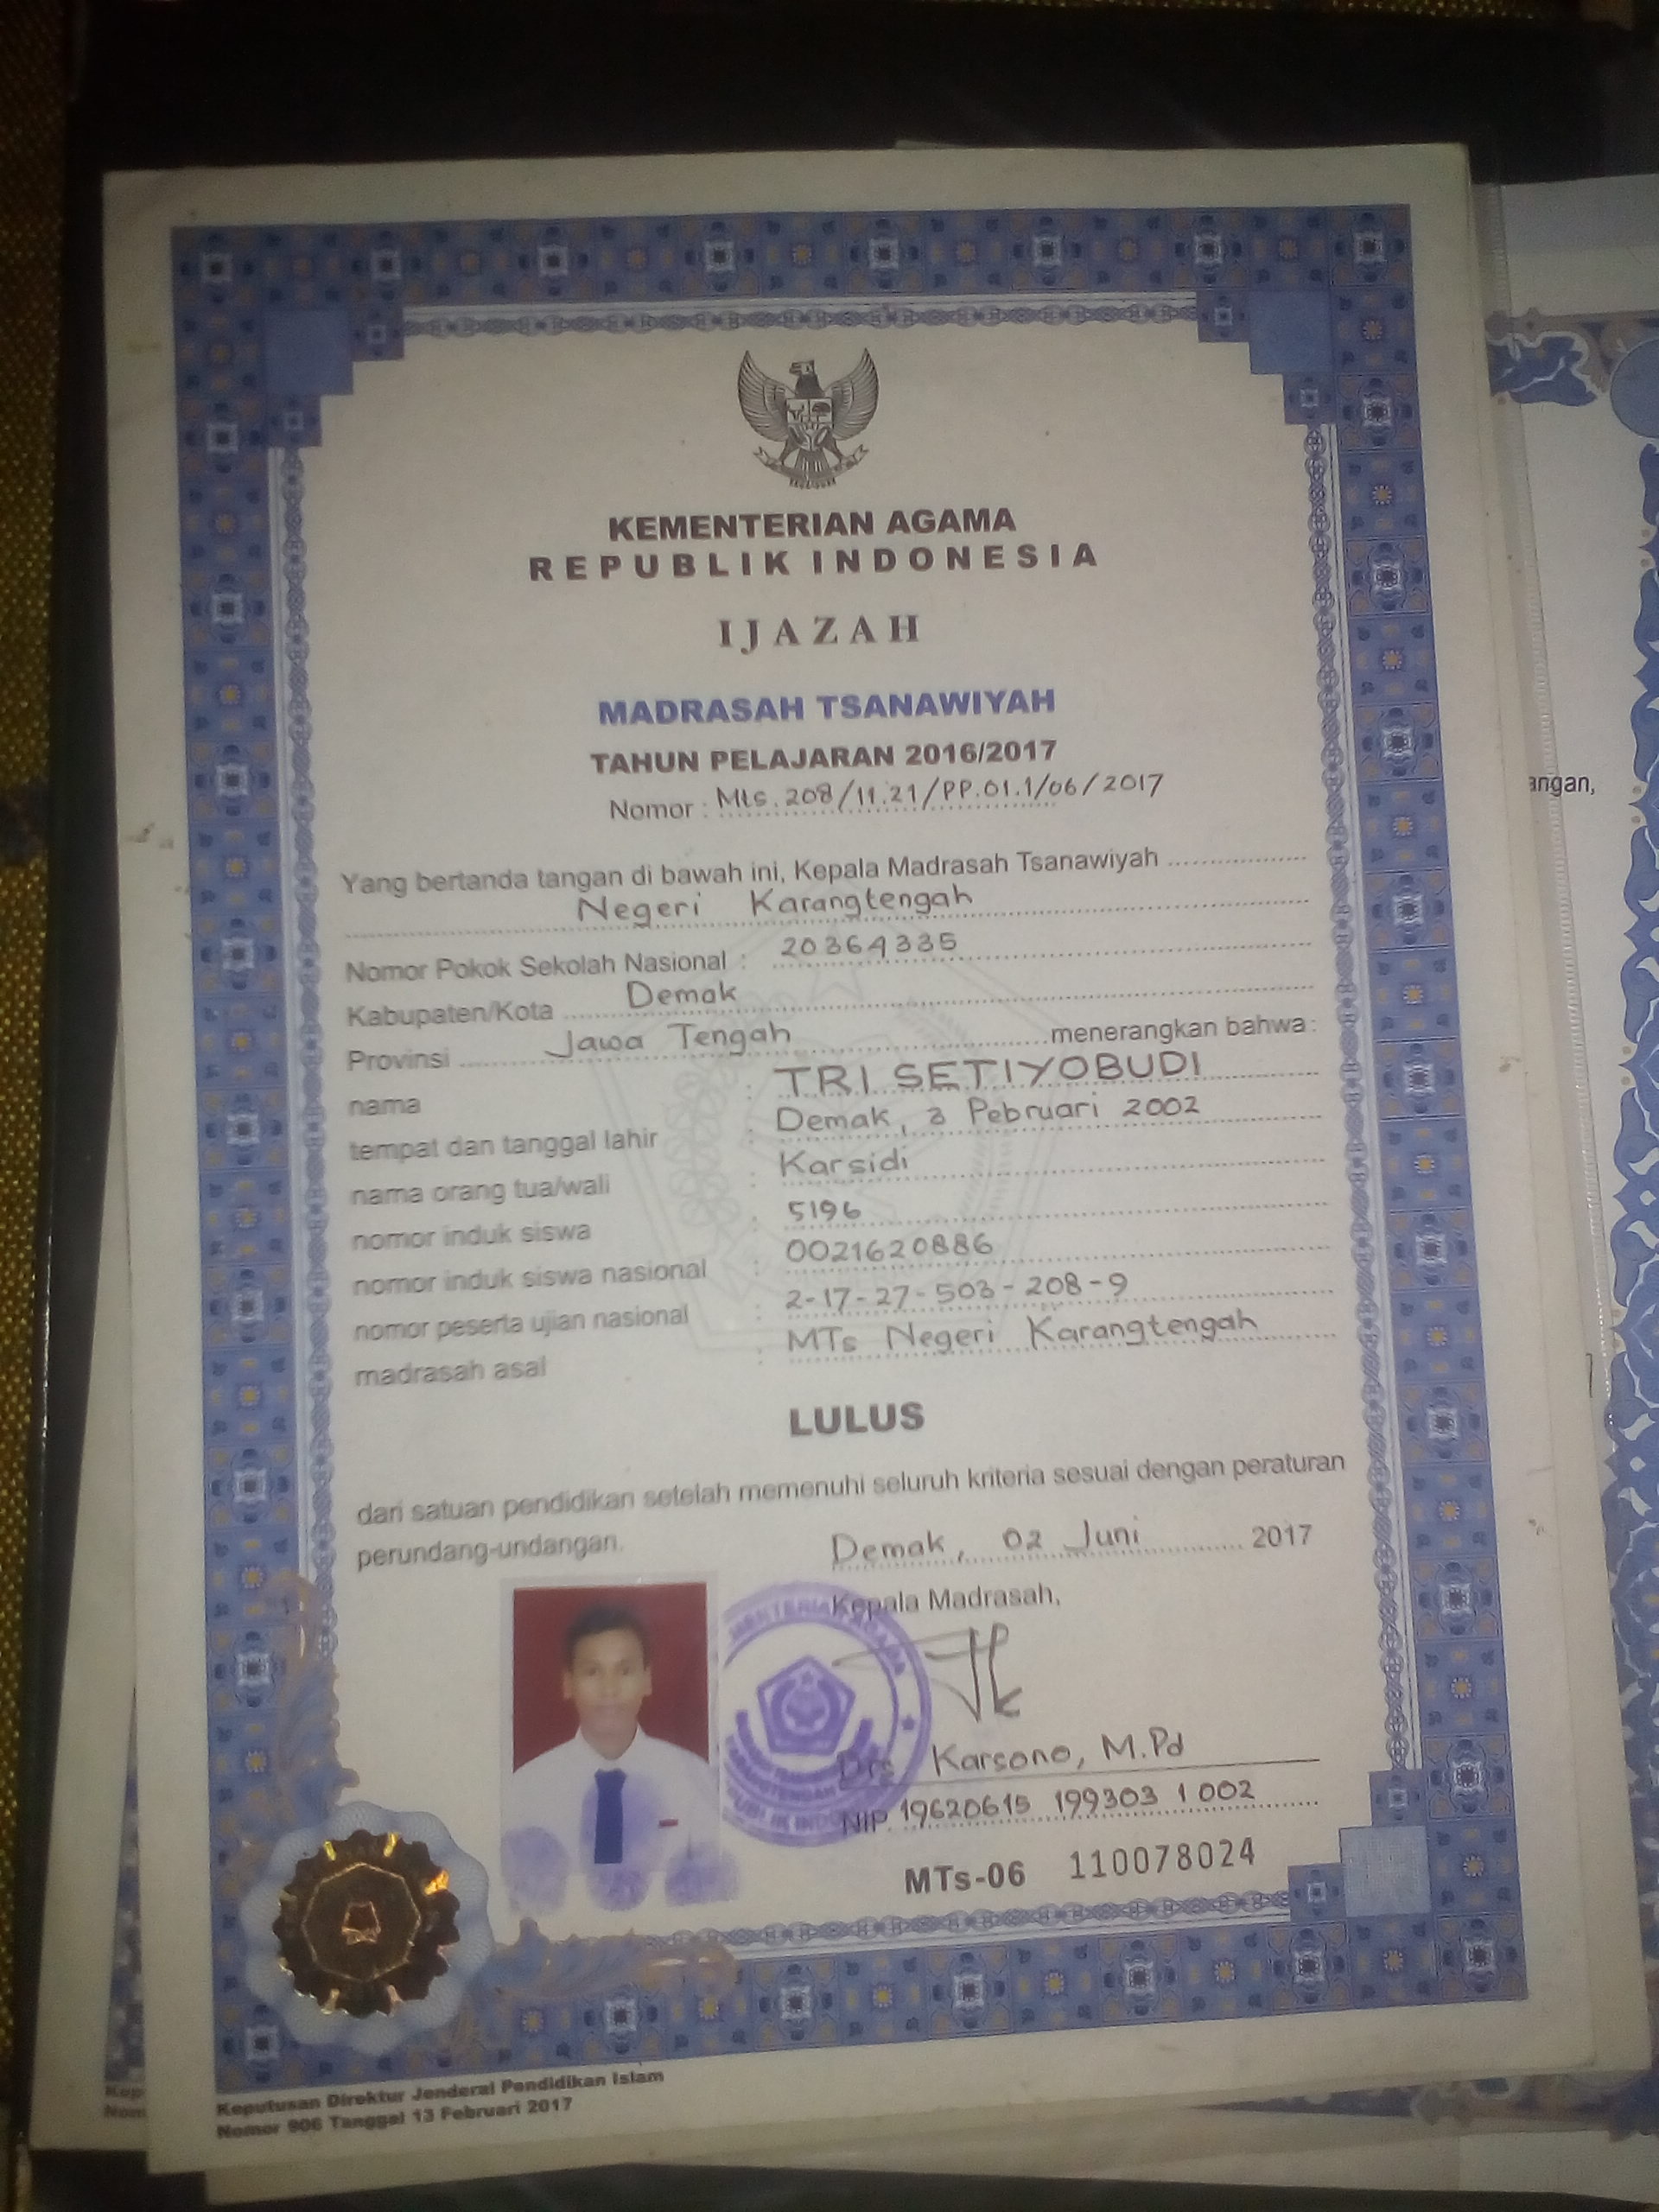 KEMENTERIAN AGAMA
REPUBLIK INDONESIA
IJAZAH
MADRASAH TSANAWIYAH
TAHUN PELAJARAN 2016/2017
Nomor : Mts. 208/11.21/PP.01.1/06/2017
Yang bertanda tangan di bawah ini, Kepala Madrasah Tsanawiyah
Negeri Karangtengah
Nomor Pokok Sekolah Nasional : 20364335
Kabupaten/Kota Demak
Provinsi Jawa Tengah menerangkan bahwa :
nama : TRI SETIYOBUDI
tempat dan tanggal lahir : Demak, 3 Pebruari 2002
nama orang tua/wali : Karsidi
nomor induk siswa : 5196
nomor induk siswa nasional : 0021620886
nomor peserta ujian nasional : 2-17-27-503-208-9
madrasah asal : MTs Negeri Karangtengah
LULUS
dari satuan pendidikan setelah memenuhi seluruh kriteria sesuai dengan peraturan
perundang-undangan.
Demak, 02 Juni 2017
Kepala Madrasah,
Drs Karsono, M.Pd
NIP. 19620615 199303 1 002
MTs-06 110078024
Keputusan Direktur Jenderal Pendidikan Islam
Nomor 906 Tanggal 13 Februari 2017
angan,